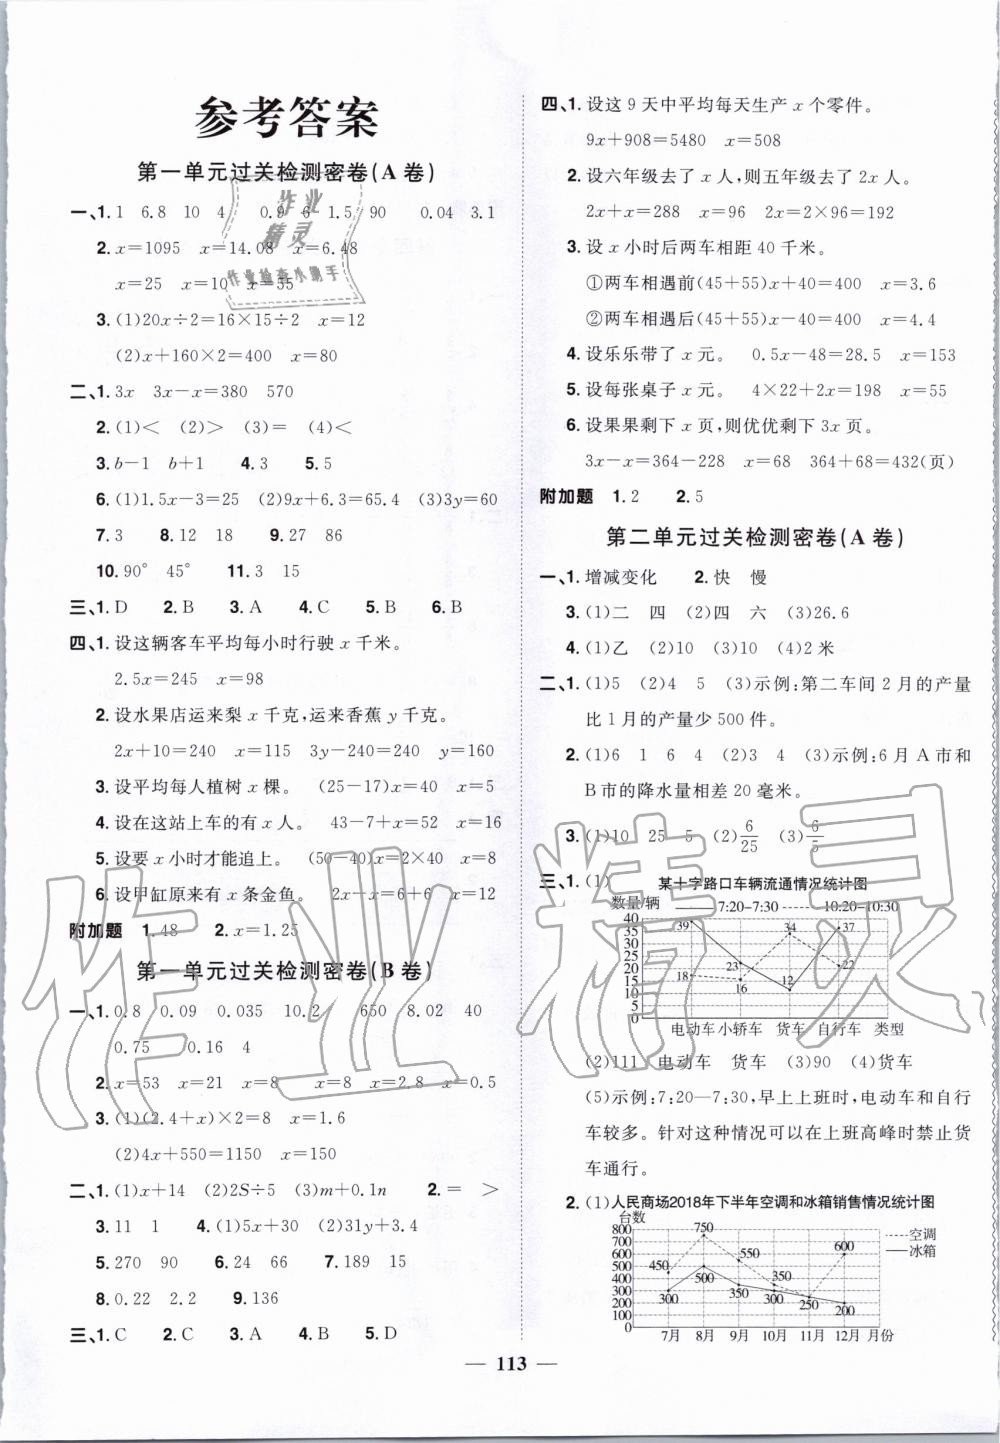 参考答案
第一单元过关检测密卷(A卷)
一、1. 1 6.8 10 4 0.9 6 1.5 90 0.04 3.1
2. x=1095 x=14.08 x=6.48
x=25 x=10 x=55
3. (1)20x÷2=16×15÷2 x=12
(2)x+160×2=400 x=80
二、1. 3x 3x-x=380 570
2. (1)< (2)> (3)= (4)<
3. b-1 b+1 4. 3 5. 5
6. (1)1.5x-3=25 (2)9x+6.3=65.4 (3)3y=60
7. 3 8. 12 18 9. 27 86
10. 90° 45° 11. 3 15
三、1. D 2. B 3. A 4. C 5. B 6. B
四、1. 设这辆客车平均每小时行驶 x 千米。
2.5x=245 x=98
2. 设水果店运来梨 x 千克,运来香蕉 y 千克。
2x+10=240 x=115 3y-240=240 y=160
3. 设平均每人植树 x 棵。 (25-17)x=40 x=5
4. 设在这站上车的有 x 人。 43-7+x=52 x=16
5. 设要 x 小时才能追上。 (50-40)x=80 x=8
6. 设甲缸原来有 x 条金鱼。 2x-x-6=6 x=12
附加题 1. 48 2. x=1.25
第一单元过关检测密卷(B卷)
一、1. 0.8 0.09 0.035 10.2 650 8.02 40
0.75 0.16 4
2. x=53 x=21 x=8 x=8 x=2.8 x=0.5
3. (1)(2.4+x)×2=8 x=1.6
(2)4x+550=1150 x=150
二、1. (1)x+14 (2)2S÷5 (3)m+0.1n 2. = >
3. 11 1 4. (1)5x+30 (2)31y+3.4
5. 270 90 6. 24 66 7. 189 15
8. 0.22 2.2 9. 136
三、1. C 2. C 3. A 4. B 5. D
四、1. 设这 9 天中平均每天生产 x 个零件。
9x+908=5480 x=508
2. 设六年级去了 x 人,则五年级去了 2x 人。
2x+x=288 x=96 2x=2×96=192
3. 设 x 小时后两车相距 40 千米。
①两车相遇前(45+55)x+40=400 x=3.6
②两车相遇后(45+55)x-40=400 x=4.4
4. 设乐乐带了 x 元。 0.5x-48=28.5 x=153
5. 设每张桌子 x 元。 4×22+2x=198 x=55
6. 设果果剩下 x 页,则优优剩下 3x 页。
3x-x=364-228 x=68 364+68=432(页)
附加题 1. 2 2. 5
第二单元过关检测密卷(A卷)
一、1. 增减变化 2. 快 慢
3. (1)二 四 (2)四 六 (3)26.6
4. (1)乙 (2)10 (3)10 (4)2米
二、1. (1)5 (2)4 5 (3)示例:第二车间 2 月的产量
比 1 月的产量少 500 件。
2. (1)6 1 6 4 (2)3 4 (3)示例:6 月 A 市和
B 市的降水量相差 20 毫米。
3. (1)10 25 5 (2)6/25 (3)6/5
三、1. (1) 某十字路口车辆流通情况统计图
数量/辆 —7:20-7:30 -----10:20-10:30
40
35
30
25
20
15
10
5
0
39 18 23 16 34 12 37 22
电动车 小轿车 货车 自行车 类型
(2)111 电动车 货车 (3)90 (4)货车
(5)示例:7:20—7:30,早上上班时,电动车和自行
车较多。针对这种情况可以在上班高峰时禁止货
车通行。
2. (1)人民商场2018年下半年空调和冰箱销售情况统计图
台数
-----空调
—冰箱
800
700
600
500
400
300
200
100
0
450 750 550 350 600
300 500 350 300 250 200
7月 8月 9月 10月 11月 12月 月份
— 113 —
作业精灵
作业
精灵
作业检查小助手